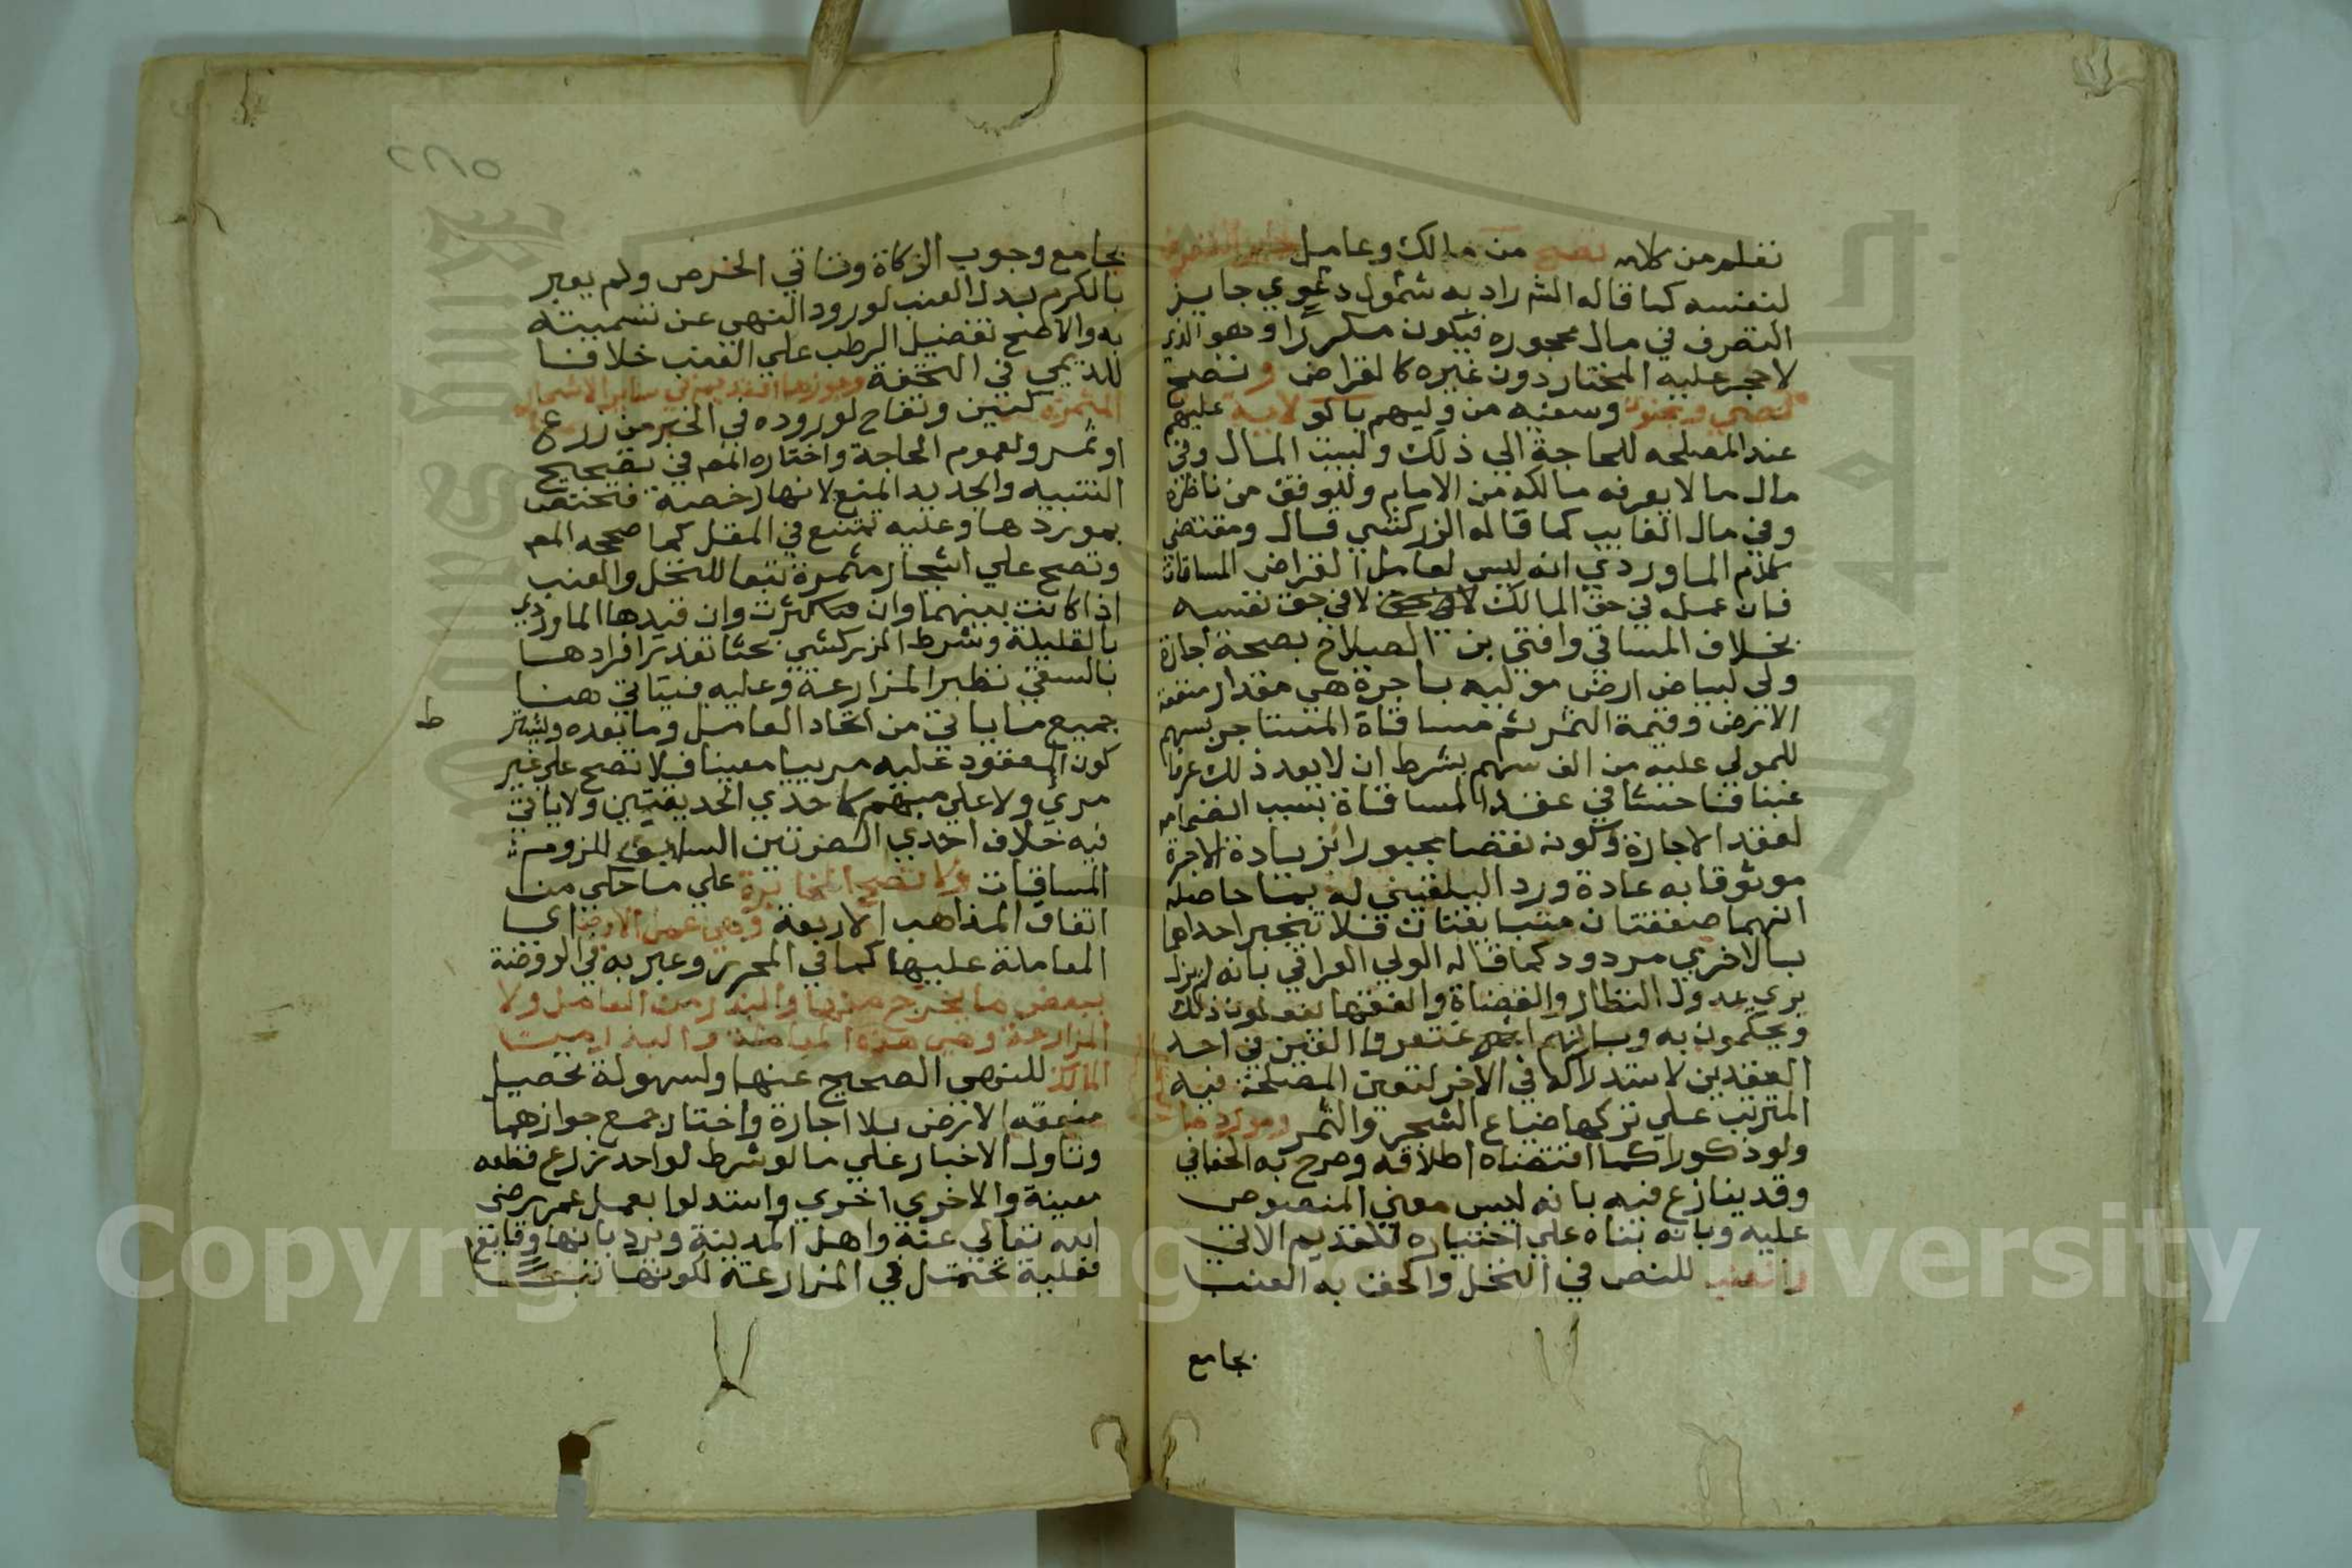 نفلم من كلامه تصح من مالك وعامل جايز التصرف
لنفسه كما قاله الشراد به شمول دعوي جايز
التصرف في مال محجوره فيكون مكررا وهو الذي
لا حجر عليه المختار دون غيره كالقراض وتصح
لصبي ومجنون وسفيه من وليهم بالولاية عليهم
عند المصلحه للحاجة الي ذلك ولبيت المال وفي
مال ما لا يعرفه مالكه من الامام وللوقف من ناظره
وفي مال الغايب كما قاله الزركشي قال ومقتضي
كلام الماوردي انه ليس لعامل القراض المساقات
فان عمله في حق المالك لا في حق نفسه
بخلاف المساقي وافتي بن الصلاح بصحة اجارة
ولي لبياض ارض موليه باجرة هي مقدار منفعة
الارض وقيمة الثمر ثم مساقاة المستاجر بسهم
للمولي عليه من الف سهم بشرط ان لا يعد ذلك عرفا
غبنا فاحشا في عقد المساقاة بسبب انضمامه
لعقد الاجارة وكونه نقصا مجبورا بزيادة الاجرة
موثوقا به عادة ورد البلقيني له بما حاصله
انهما صفقتان متباينتان فلا تنجبر احداهما
بالاخري مردود كما قاله الولي العراقي بانه لم يزل
يري عدول النظار والقضاة والفقها يفعلون ذلك
ويحكمون به وبانهم اغتفروا الغبن في احد
العقدين لاستدراكه في الاخر لتعين المصلحة فيه
المترتب علي تركها ضياع الشجر والثمر وموردها
ولو ذكورا كما اقتضاه اطلاقه وصرح به الخفافي
وقد ينازع فيه بانه ليس معني المنصوص
عليه وبانه بناه علي اختياره للقديم الاتي
والعنب للنص في النخل والحق به العنب
بجامع
٢٢٨٥
بجامع وجوب الزكاة وتاتي الخرص ولم يعبر
بالكرم بدل العنب لورود النهي عن تسميته
به والاصح تفضيل الرطب علي العنب خلافا
للديمي في التحفة وجوزها القديم في ساير الاشجار
المثمرة كتين وتفاح لوروده في الخبر من زرع
او ثمر ولعموم الحاجة واختاره المصم في تصحيح
التنبيه والجديد المنع لانها رخصة فتختص
بموردها وعليه تمتنع في المقل كما صححه المصم
وتصح علي اشجار مثمرة تبعا للنخل والعنب
اذا كانت بينهما وان كثرت وان قيدها الماوردي
بالقليلة وشرط الزركشي بحثا تعذر افرادها
بالسقي نظير المزارعة وعليه فياتي هنا
جميع ما ياتي من اتحاد العامل وما بعده ويشتر
ط
كون المعقود عليه مرييا معينا فلا تصح علي غير
مري ولا علي مبهم كاحدي الحديقتين ولا ياتي
فيه خلاف احدي الصرتين السابق للزوم
المساقات ولا تصح المخابرة علي ما حكي من
اتفاق المذاهب الاربعة وهي عمل الارض اي
المعاملة عليها كما في المحرر وعبر به في الروضة
ببعض ما يخرج منها والبذر من العامل ولا
المزارعة وهي هذه المعاملة والبذر من
المالك للنهي الصحيح عنها ولسهولة تحصيل
منفعة الارض بلا اجارة واختار جمع جوازهما
وتاول الاخبار علي ما لو شرط لواحد زرع قطعه
معينة والاخري اخري واستدلوا بعمل عمر رضي
الله تعالي عنه واهل المدينة ويرد بانها وقايع
فعلية تحتمل في المزارعة لكونها تبعا